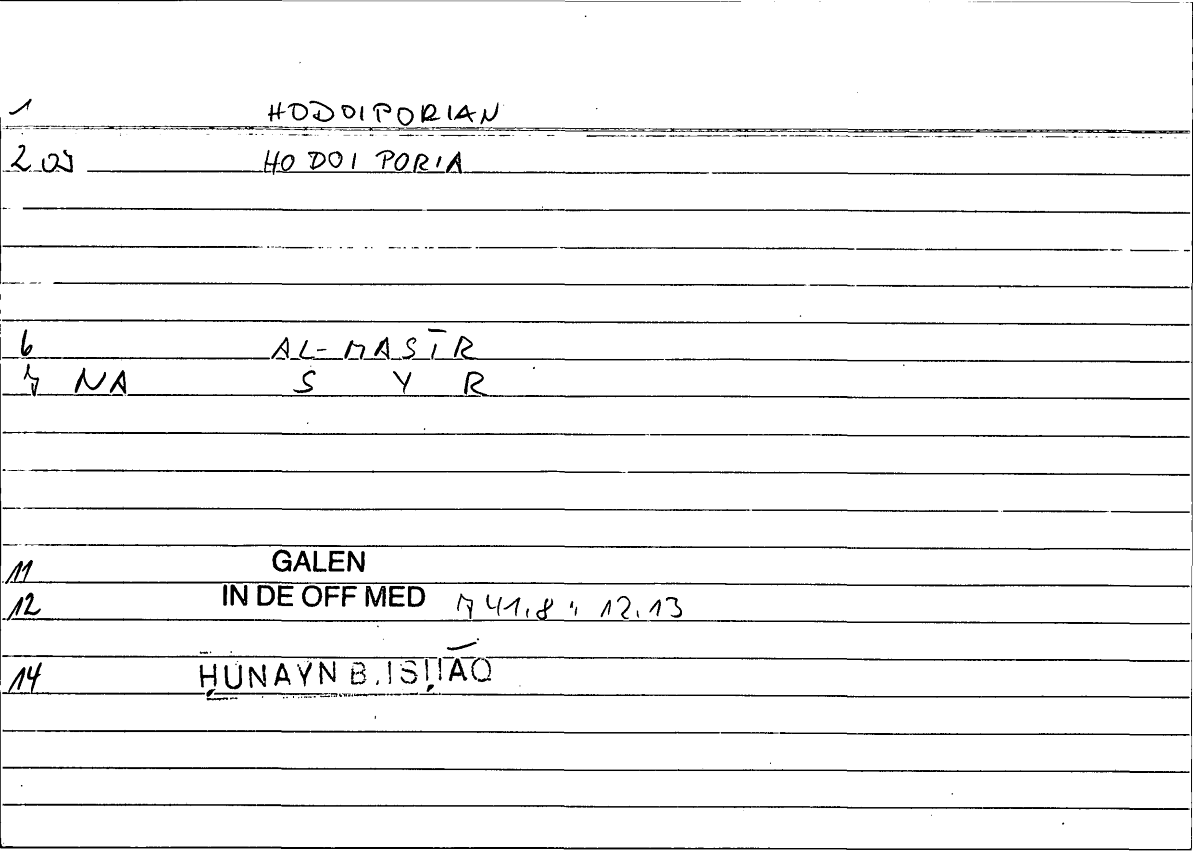 1 HODOIPORIAN
2 HODOIPORIA
6 AL-MASĪR
7 NA S Y R
11 GALEN
12 IN DE OFF MED 41,8 12.13
14 ḤUNAYN B. ISḤĀQ